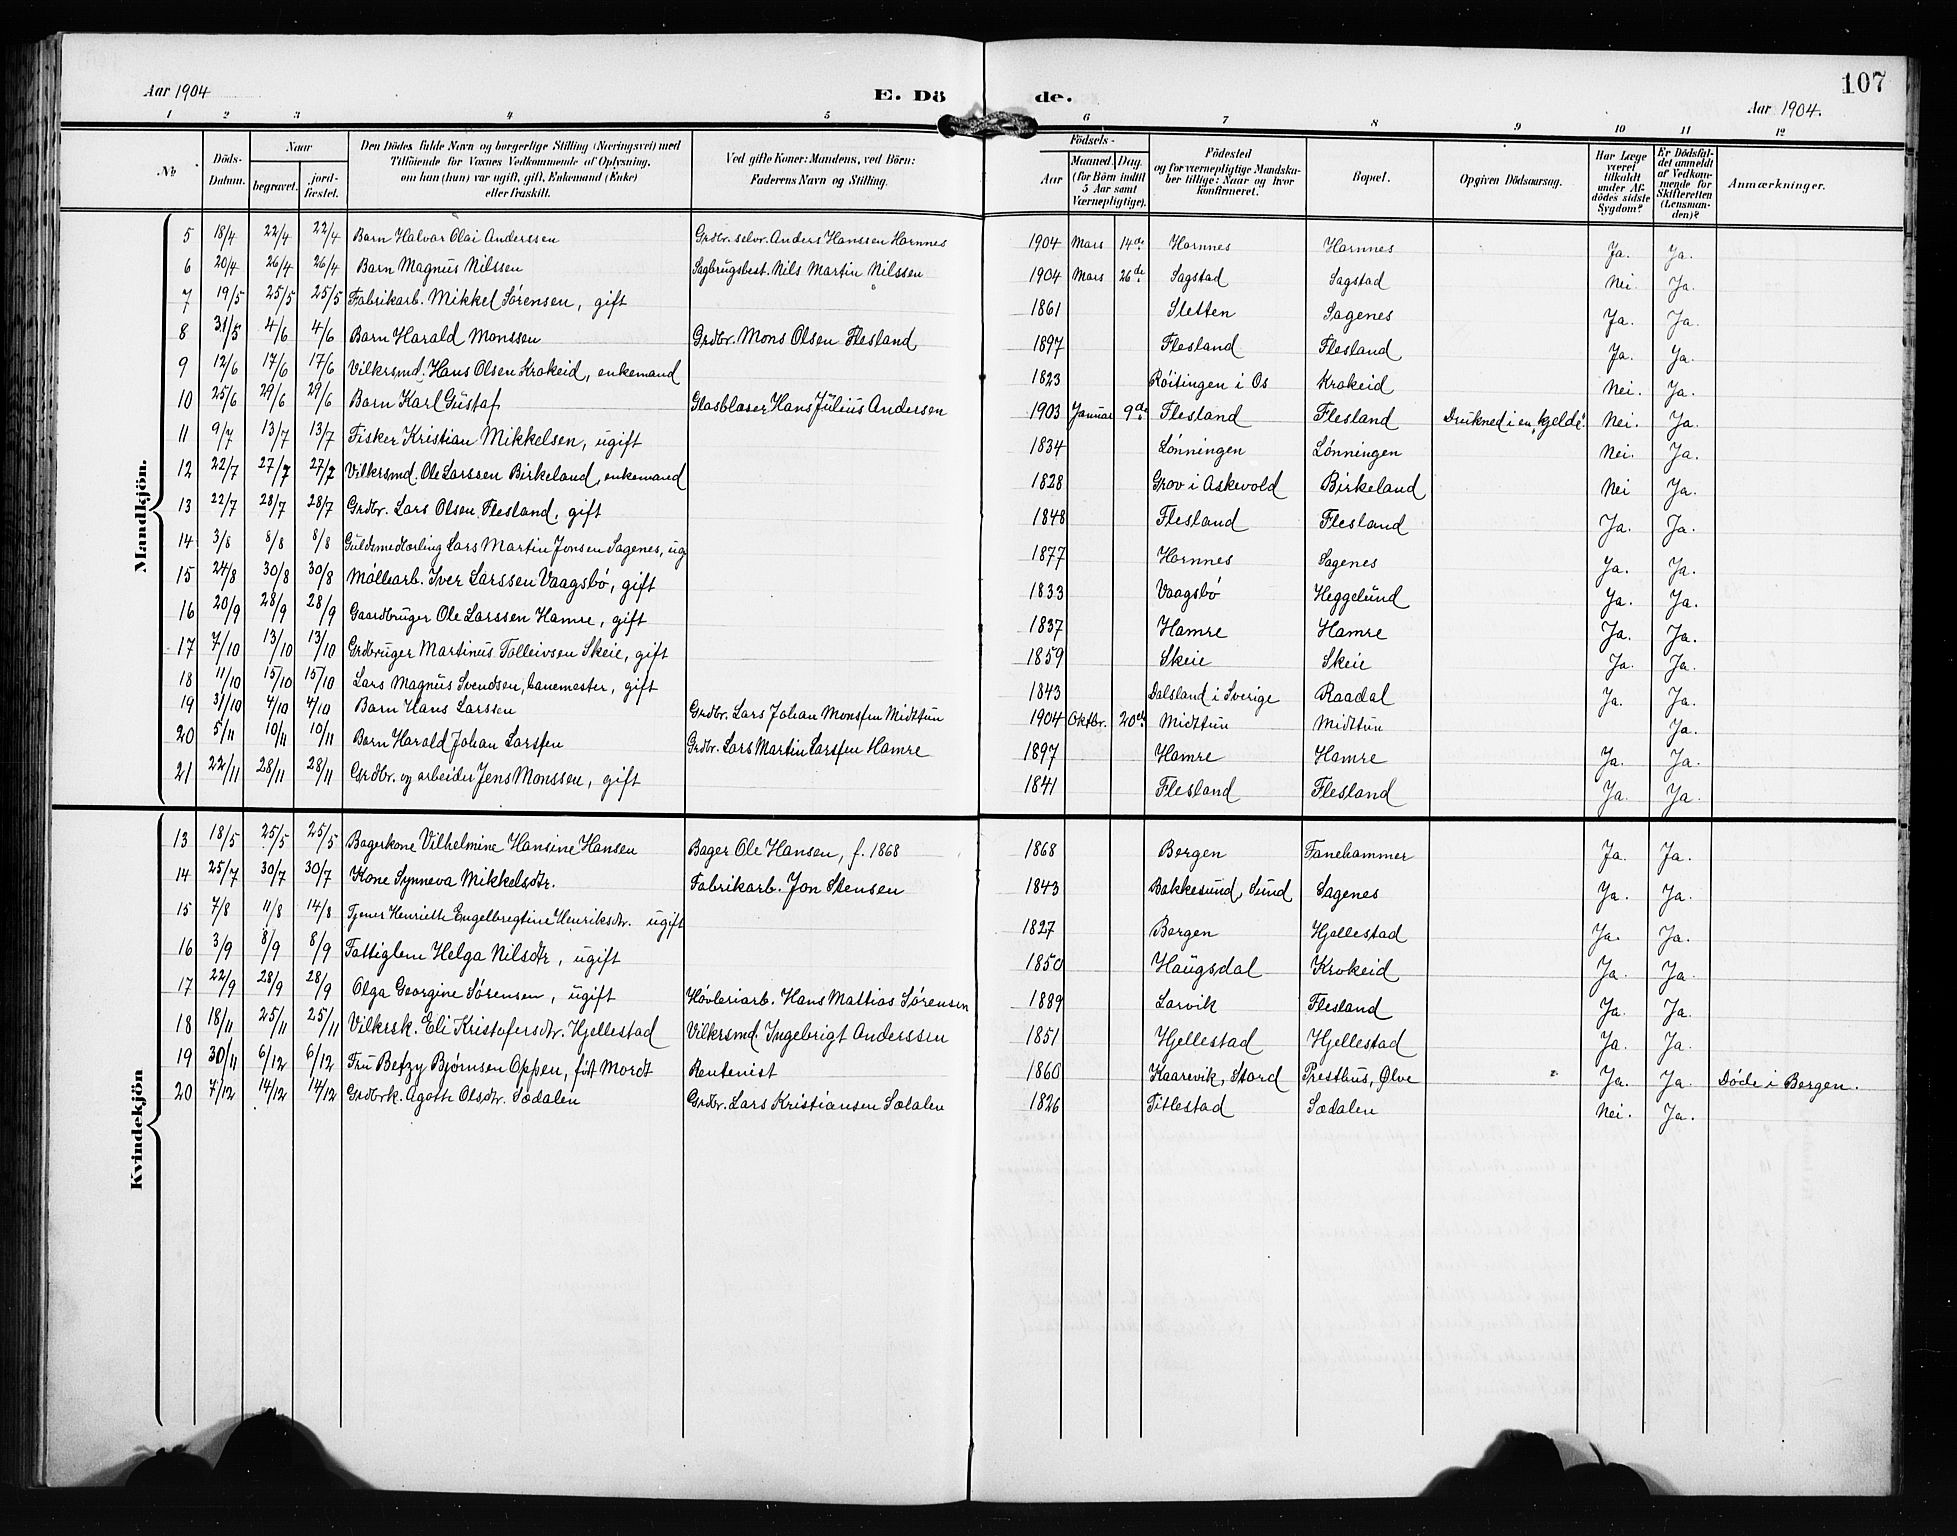 107
Aar 1904
E. Dö de.
Aar 1904.
1 2 3 4 5 6 7 8 9 10 11 12
No
Döds-Datum.
Naar
begravet.
jord-fæstet.
Den Dödes fulde Navn og borgerlige Stilling (Næringsvei) med
Tilföiende for Voxnes Vedkommende af Oplysning,
om han (hun) var ugift, gift, Enkemand (Enke)
eller fraskilt.
Ved gifte Koner: Mandens, ved Börn:
Faderens Navn og Stilling.
Födsels-
Aar
Maaned. Dag.
(for Börn indtil
5 Aar samt
Værnepligtige).
Födested
og for værnepligtige Mandska-
ber tillige: Naar og hvor
konfirmeret.
Bopæl.
Opgiven Dödsaarsag.
Har Læge
været
tilkaldt
under Af-
dödes sidste
Sygdom?
Er Dödsfal-
det anmeldt
af Vedkom-
mende for
Skifteretten
(Lensman-
den)?
Anmærkninger.
Mandkjön.
5 18/4 22/4 22/4 Barn Halvar Olai Anderssen Grdbr. selvr. Anders Hanssen Hornnes 1904 Mars 14de Hornnes Hornnes Ja. Ja.
6 20/4 26/4 26/4 Barn Magnus Nilssen Sagbrugsbest. Nils Martin Nilssen 1904 Mars 26de Sagstad Sagstad Nei. Ja.
7 19/5 25/5 25/5 Fabrikarb. Mikkel Sørensen, gift 1861 Sletten Sagenes Ja. Ja.
8 31/5 4/6 4/6 Barn Harald Monssen Grdbr. Mons Olsen Flesland 1897 Flesland Flesland Ja. Ja.
9 12/6 17/6 17/6 Vilkrsmd. Hans Olsen Krokeid, enkemand 1823 Røitingen i Os Krokeid Nei. Ja.
10 25/6 29/6 29/6 Barn Karl Gustaf Glasblaser Hans Julius Andersen 1903 Januar 9de Flesland Flesland Drukned i en "kjelde". Nei. Ja.
11 9/7 13/7 13/7 Fisker Kristian Mikkelsen, ugift 1834 Lønningen Lønningen Nei. Ja.
12 22/7 27/7 27/7 Vilkrsmd. Ole Larssen Birkeland, enkemand 1828 Grov i Askevold Birkeland Nei Ja.
13 22/7 28/7 28/7 Grdbr. Lars Olsen Flesland, gift 1848 Flesland Flesland Ja. Ja.
14 3/8 8/8 8/8 Guldsmedlærling Lars Martin Jonsen Sagenes, ug 1877 Hornnes Sagenes Ja. Ja.
15 24/8 30/8 30/8 Møllearb. Iver Larssen Vaagsbø, gift 1833 Vaagsbø Heggelund Ja. Ja.
16 20/9 28/9 28/9 Gaardbruger Ole Larssen Hamre, gift 1837 Hamre Hamre Ja. Ja.
17 7/10 13/10 13/10 Grdbruger Martinus Tolleivsen Skeie, gift 1859 Skeie Skeie Ja. Ja.
18 11/10 15/10 15/10 Lars Magnus Svendsen, banemester, gift 1843 Dalsland i Sverige Raadal Ja. Ja.
19 31/10 4/10 4/10 Barn Hans Larssen Grdbr. Lars Johan Monssen Midttun 1904 Oktbr. 20de Midttun Midttun Ja.
20 5/11 10/11 10/11 Barn Harald Johan Larssen Grdbr. Lars Martin Larssen Hamre 1897 Hamre Hamre Ja. Ja.
21 22/11 28/11 28/11 Grdbr. og arbeider Jens Monssen, gift 1841 Flesland Flesland Ja. Ja.
Kvindekjön
13 18/5 25/5 25/5 Bagerkone Vilhelmine Hansine Hansen Bager Ole Hansen, f. 1868 1868 Bergen Fanehammer Ja. Ja.
14 25/7 30/7 30/7 Kone Synneva Mikkelsdtr. Fabrikarb. Jon Stensen 1843 Bakkesund, Sund Sagenes Ja. Ja.
15 7/8 11/8 14/8 Tjener Henriette Engelbregtine Henriksdtr. ugift 1827 Bergen Hjellestad Ja. Ja.
16 3/9 8/9 8/9 Fattiglem Helga Nilsdtr, ugift 1850 Haugsdal Krokeid Ja. Ja.
17 22/9 28/9 28/9 Olga Georgine Sørensen, ugift Høvleriarb. Hans Mattias Sørensen 1889 Larvik Flesland Ja. Ja.
18 18/11 25/11 25/11 Vilkrsk. Eli Kristofersdtr. Hjellestad Vilkrsmd. Ingebrigt Anderssen 1851 Hjellestad Hjellestad Ja. Ja.
19 30/11 6/12 6/12 Fru Betzy Bjørnsen Oppen, født Mordt Rentenist 1860 Kaarevik, Stord Presthus, Ølve Ja. Ja. Døde i Bergen.
20 7/12 14/12 14/12 Grdbrk. Agothe Olsdtr. Sædalen Grdbr. Lars Kristiansen Sædalen 1826 Titlestad Sædalen Nei. Ja.